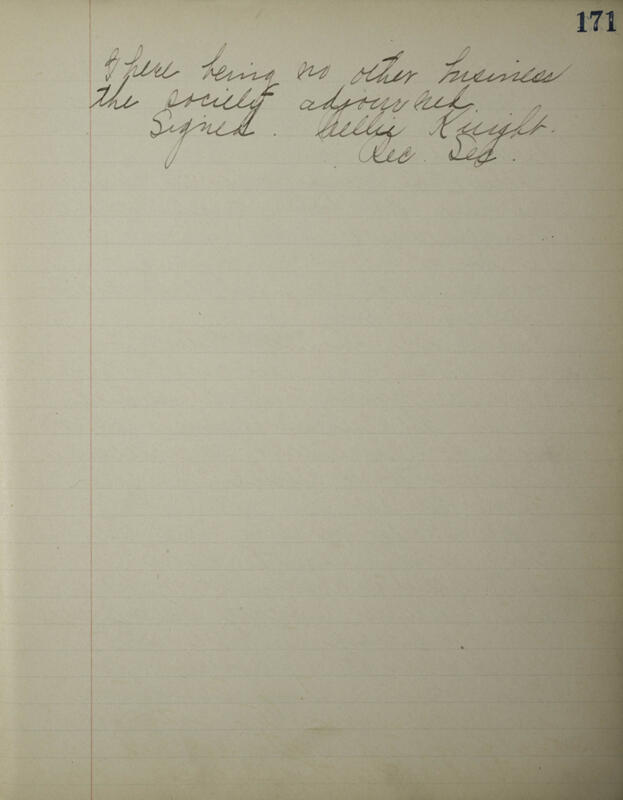 171
There being no other business
the society adjourned.
Signed. Nellie Knight.
Rec. Sec.